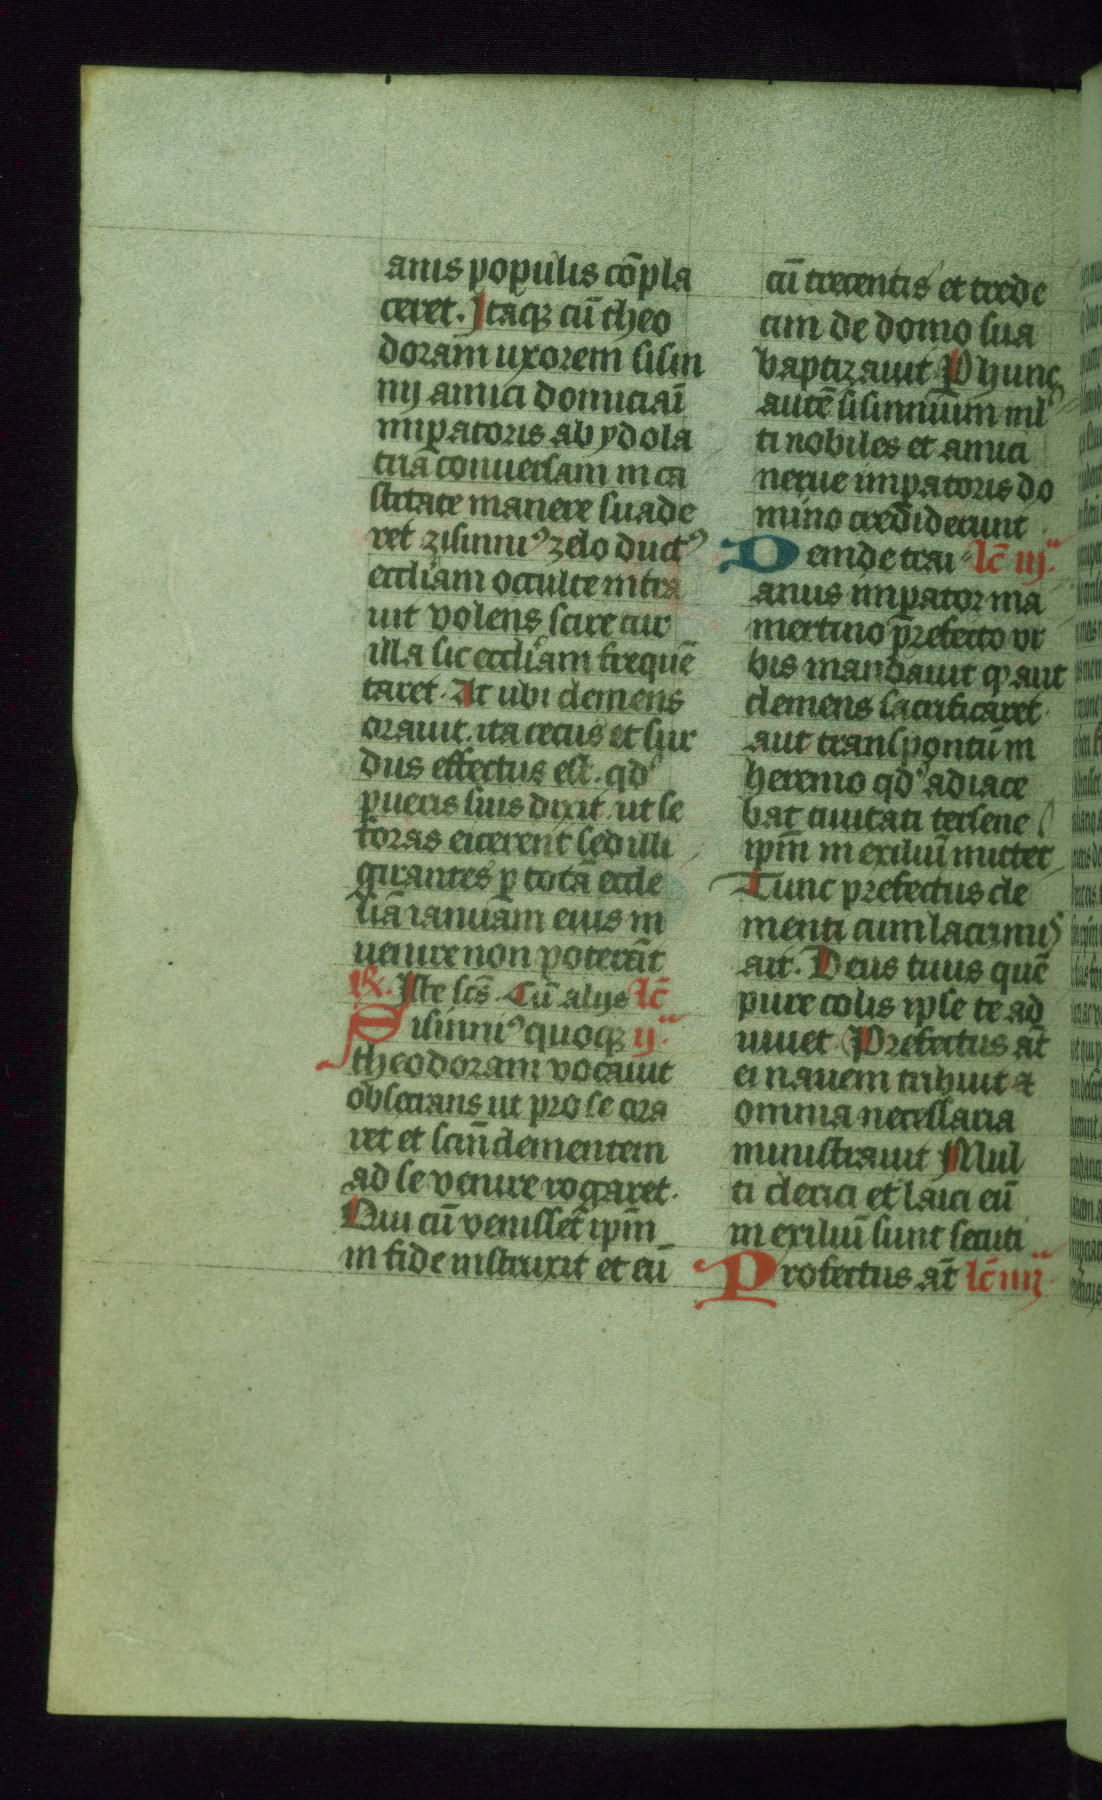 anis populis cōpla
ceret. Itaqꝫ cū theo
doram uxorem sisin
nij amici domiciaī
imꝑatoris ab ydola
tria conuersam in ca
stitate manere suade
ret zisinniꝰ zelo ductꝰ
eccliam occulte intra
uit volens scire cur
illa sic eccliam frequē
taret. At ubi clemens
orauit. ita cecus et sur
dus effectus est. qd
pueris suis dixit ut se
foras eicerent sed illi
girantes ꝑ totā eccle
siā ianuam eius in
uenire non poterāt
R. Iste scs̄. Cū alijs lc̄
Sisinniꝰ quoqꝫ ij.
theodoram vocauit
obsecrans ut pro se ora
ret et scm̄ clementem
ad se venire rogaret.
Qui cū venisset ip̄m
in fide instruxit et eū
cū trecentis et trede
cim de domo sua
baptizauit Ꝑ hunc
autē sisinnium ml
ti nobiles et amici
nerue imꝑatoris do
mino crediderunt
Deinde trai lc̄ iij.
anus imꝑator ma
mertino p̄refecto vr
bis mandauit qꝫ aut
clemens sacrificaret
aut trans pontū in
heremo qd adiace
bat ciuitati tersene
ip̄m in exiliū mittet
Tunc prefectus cle
menti cum lacrimis
ait. Deus tuus quē
pure colis ipse te ad
iuuet. Prefectus āt
ei nauem tribuit ⁊
omnia necessaria
ministrauit Mul
ti clerici et laici eū
in exiliū sunt secuti
Profectus āt lc̄ iiij